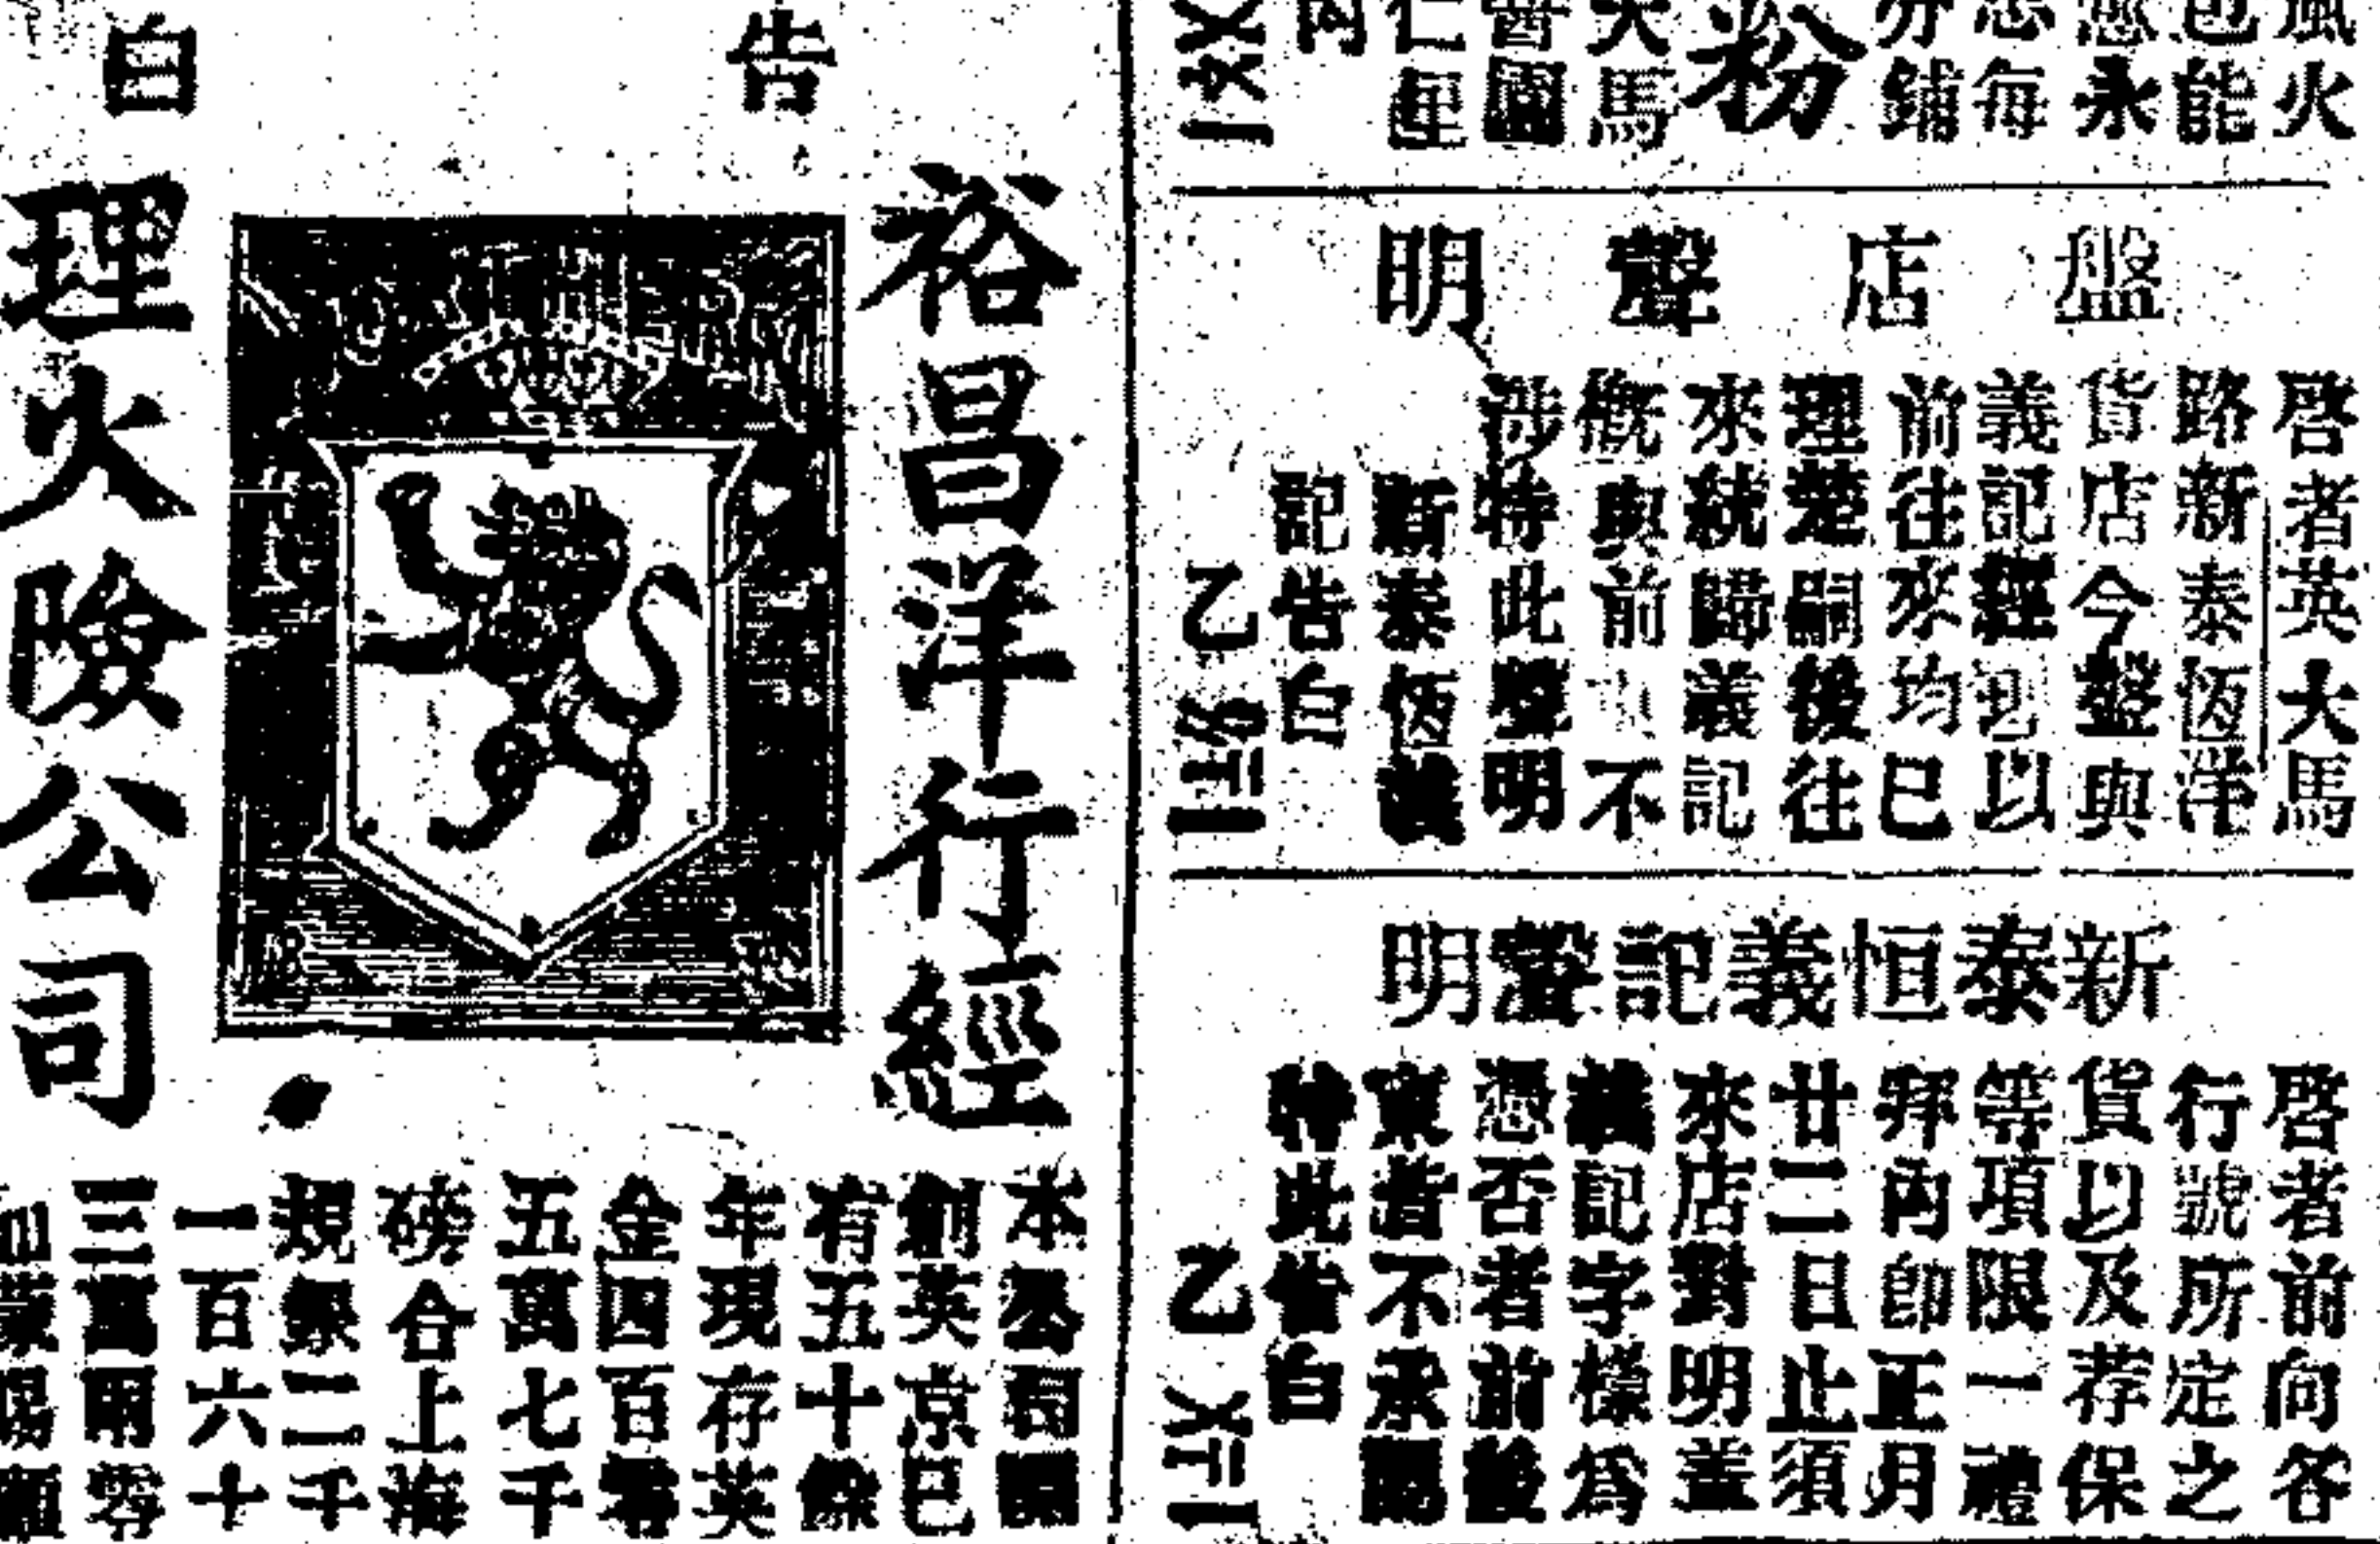 風火
也能
愈永
恙每
分鋪
粉
大馬
普國
仁里
內
盤店聲明
啓者英大馬
路新泰恆洋
貨店今盤與
義記經理以
前往來均已
理楚嗣後往
來統歸義記
概與前東不
涉特此聲明
新泰恆義
記告白
乙
新泰恒義記聲明
啓者前向各
行號所定之
貨以及荐保
等項限一禮
拜內卽正月
廿二日止須
來店對明蓋
義記字樣爲
憑否者前後
東皆不承認
特此告白
乙
告白
裕昌洋行經
理火險公司
本公司開
創英京已
有五十餘
年現存英
金四百零
五萬七千
磅合上海
規銀二千
一百六十
三萬兩零
如蒙賜顧